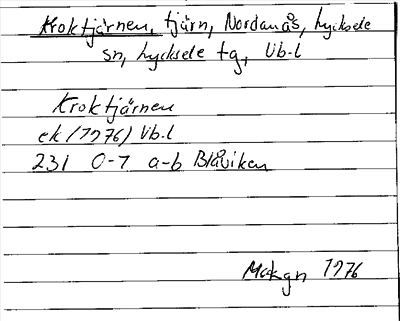 Kroktjärnen, tjärn, Nordanås, Lycksele
sn, Lycksele tg, Vb.l
Kroktjärnen
ek (1976) Vb.l
231 0-1 a-b Blåviken
Mckgn 1976